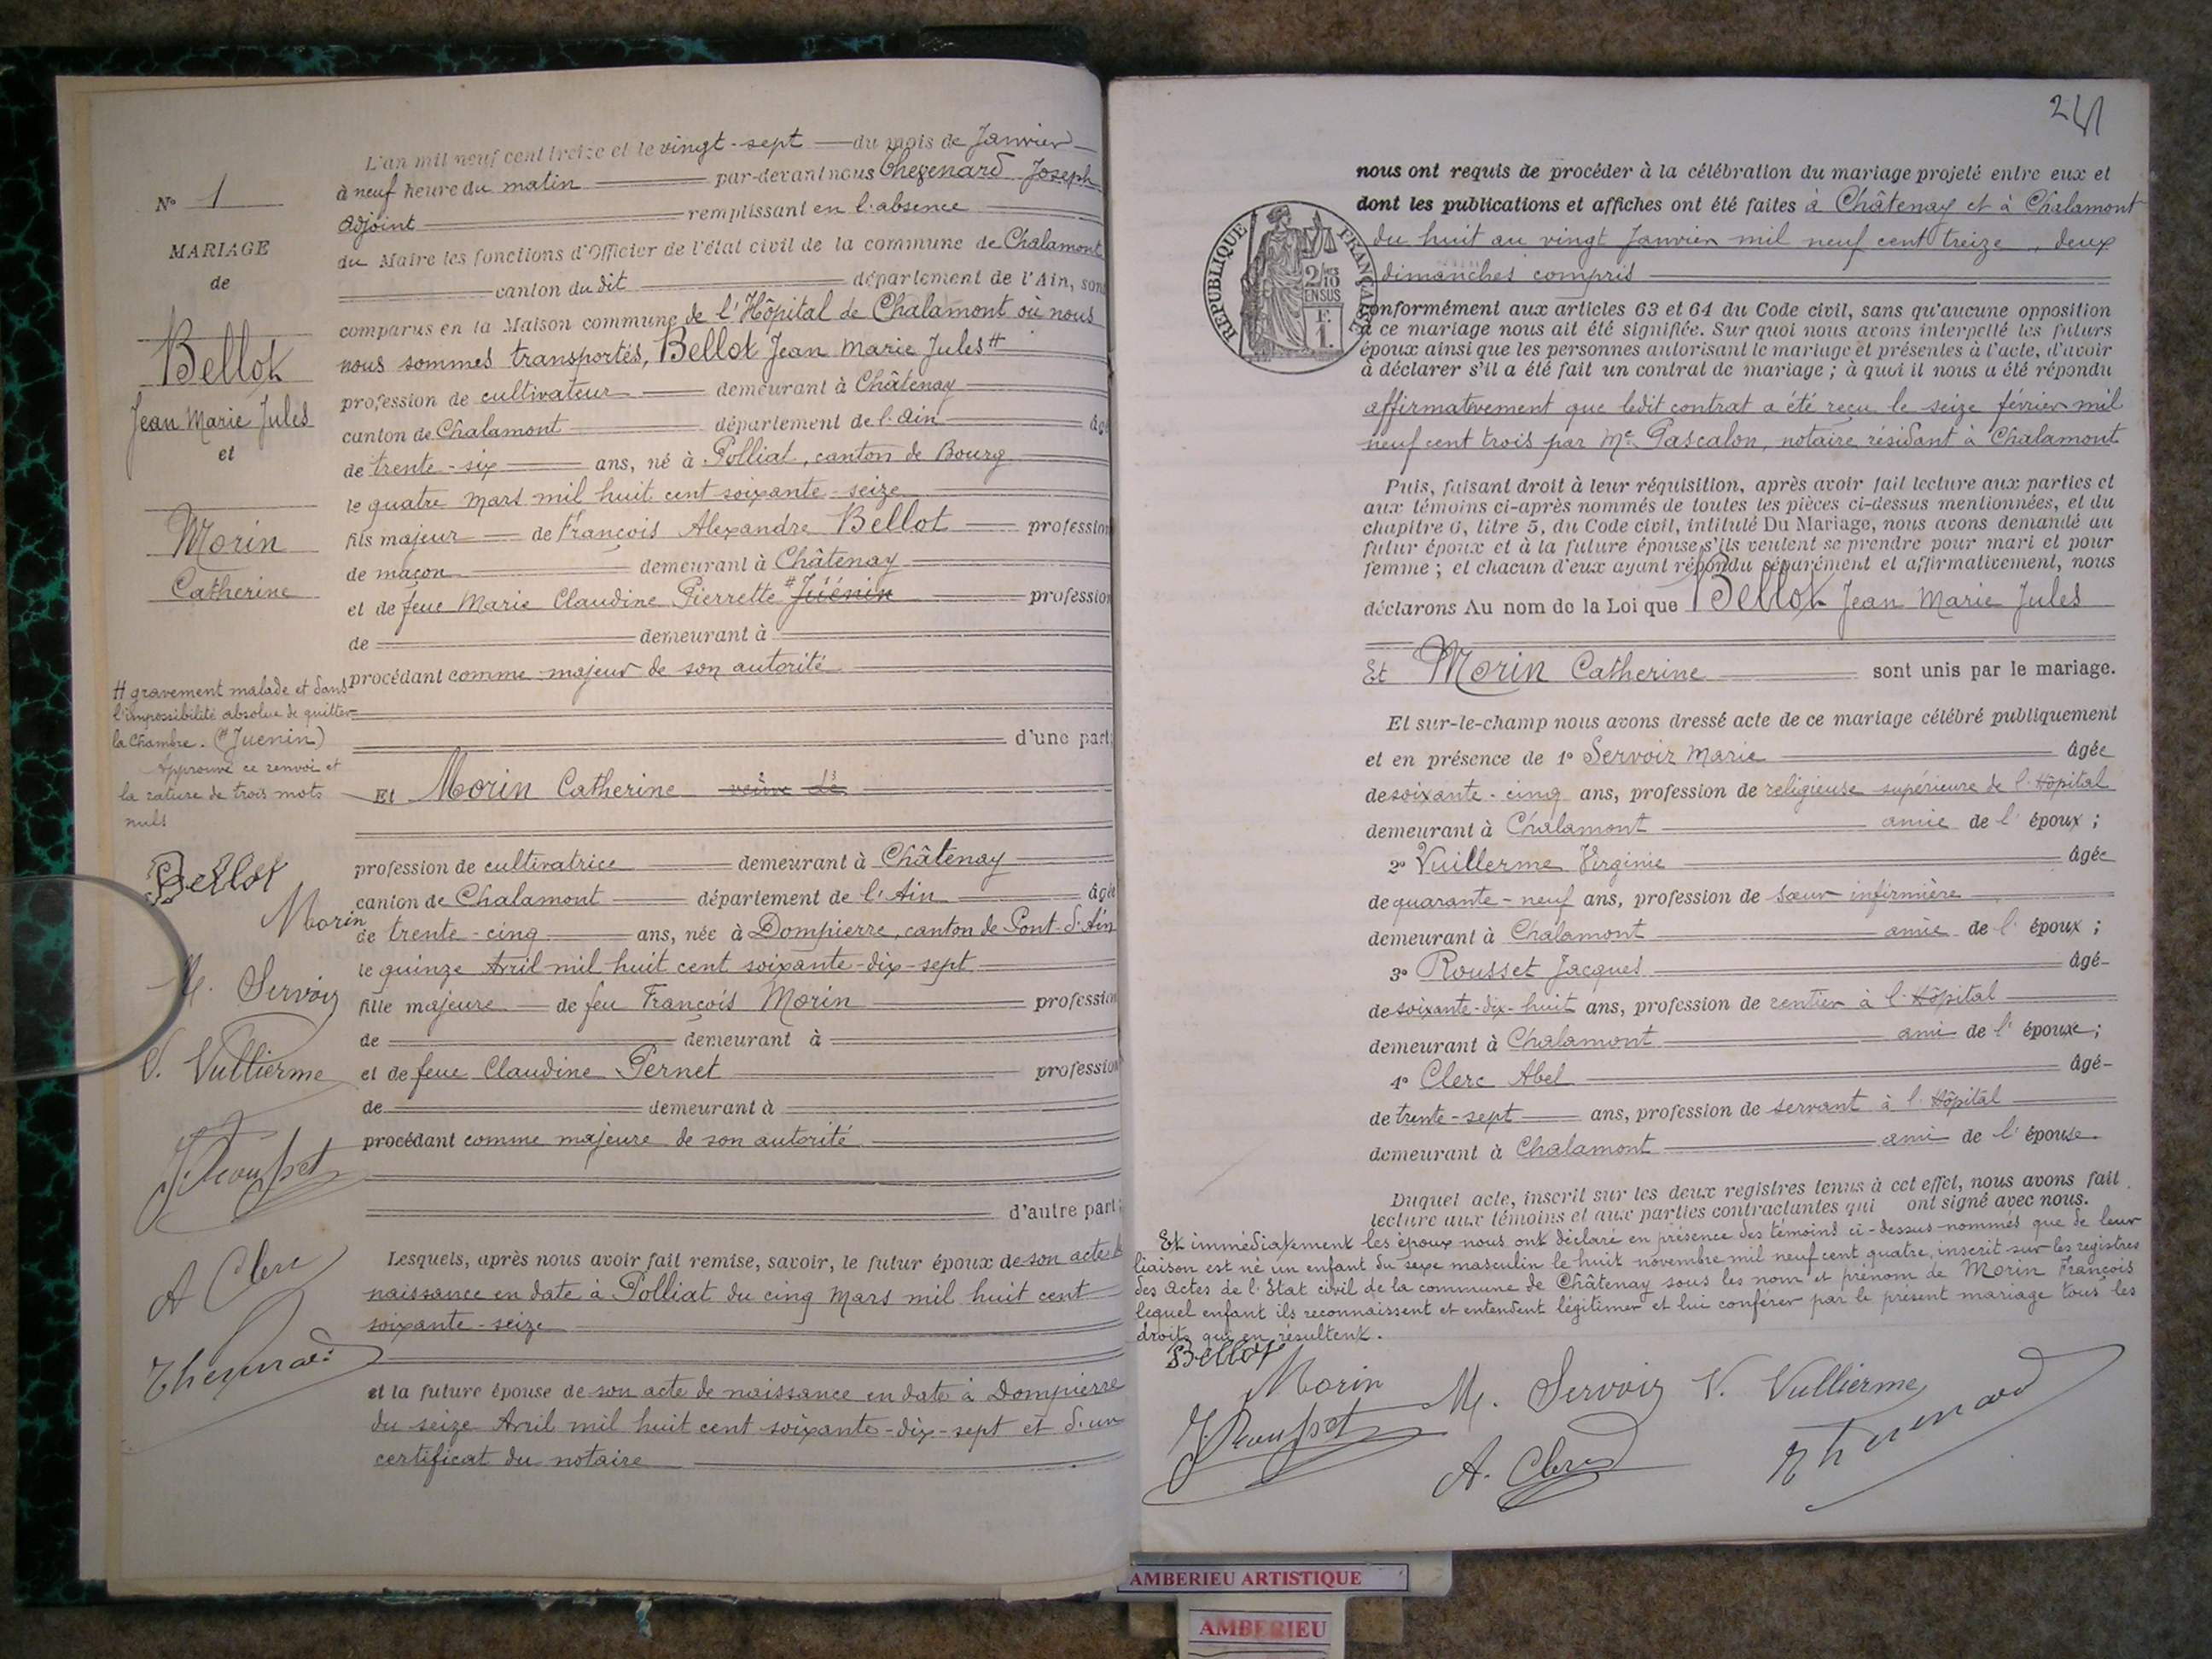 N° 1
MARIAGE
de
Bellot
Jean Marie Jules
et
Morin
Catherine
# gravement malade et dans
l'impossibilité absolue de quitter
la chambre. (# Juenin)
Approuvé ce renvoi et
la rature de trois mots
nuls
Bellot
Morin
M. Servoiz
V. Vullierme
J. Rousset
A Clerc
Thezenard
L'an mil neuf cent treize et le vingt-sept du mois de Janvier
à neuf heure du matin par-devant nous Thezenard Joseph
adjoint remplissant en l'absence
du Maire les fonctions d'Officier de l'état civil de la commune de Chalamont
canton du dit département de l'Ain, sont
comparus en la Maison commune de l'Hôpital de Chalamont où nous
nous sommes transportés, Bellot Jean Marie Jules #
profession de cultivateur demeurant à Châtenay
canton de Chalamont département de l'Ain âgé
de trente-six ans, né à Polliat, canton de Bourg
le quatre Mars mil huit cent soixante-seize
fils majeur de François Alexandre Bellot profession
de maçon demeurant à Châtenay
et de feue Marie Claudine Pierrette # Juénin profession
de demeurant à
procédant comme majeur de son autorité
d'une part;
Et Morin Catherine veuve de
profession de cultivatrice demeurant à Châtenay
canton de Chalamont département de l'Ain âgée
de trente-cinq ans, née à Dompierre, canton de Pont-d'Ain
le quinze Avril mil huit cent soixante-dix-sept
fille majeure de feu François Morin profession
de demeurant à
et de feue Claudine Pernet profession
de demeurant à
procédant comme majeure de son autorité
d'autre part;
Lesquels, après nous avoir fait remise, savoir, le futur époux de son acte de
naissance en date à Polliat du cinq Mars mil huit cent
soixante-seize
et la future épouse de son acte de naissance en date à Dompierre
du seize Avril mil huit cent soixante-dix-sept et d'un
certificat du notaire
nous ont requis de procéder à la célébration du mariage projeté entre eux et
dont les publications et affiches ont été faites à Châtenay et à Chalamont
du huit au vingt Janvier mil neuf cent treize, deux
dimanches compris
RÉPUBLIQUE FRANÇAISE
2/10
EN SUS
1 F.
conformément aux articles 63 et 64 du Code civil, sans qu'aucune opposition
à ce mariage nous ait été signifiée. Sur quoi nous avons interpellé les futurs
époux ainsi que les personnes autorisant le mariage et présentes à l'acte, d'avoir
à déclarer s'il a été fait un contrat de mariage ; à quoi il nous a été répondu
affirmativement que ledit contrat a été reçu le seize février mil
neuf cent trois par Me Pascalon, notaire résidant à Chalamont
Puis, faisant droit à leur réquisition, après avoir fait lecture aux parties et
aux témoins ci-après nommés de toutes les pièces ci-dessus mentionnées, et du
chapitre 6, titre 5, du Code civil, intitulé Du Mariage, nous avons demandé au
futur époux et à la future épouse s'ils veulent se prendre pour mari et pour
femme ; et chacun d'eux ayant répondu séparément et affirmativement, nous
déclarons Au nom de la Loi que Bellot Jean Marie Jules
Et Morin Catherine sont unis par le mariage.
Et sur-le-champ nous avons dressé acte de ce mariage célébré publiquement
et en présence de 1° Servoiz Marie âgée
de soixante-cinq ans, profession de religieuse supérieure de l'Hôpital
demeurant à Chalamont amie de l'époux ;
2° Vuillerme Virginie âgée
de quarante-neuf ans, profession de sœur infirmière
demeurant à Chalamont amie de l'époux ;
3° Rousset Jacques âgé
de soixante-dix-huit ans, profession de rentier à l'Hôpital
demeurant à Chalamont ami de l'épouxe;
4° Clerc Abel âgé
de trente-sept ans, profession de servant à l'Hôpital
demeurant à Chalamont ami de l'épouse.
Duquel acte, inscrit sur les deux registres tenus à cet effet, nous avons fait
lecture aux témoins et aux parties contractantes qui ont signé avec nous.
Et immédiatement les époux nous ont déclaré en présence des témoins ci-dessus nommés que de leur
liaison est né un enfant du sexe masculin le huit novembre mil neuf cent quatre, inscrit sur les registres
des actes de l'Etat civil de la commune de Châtenay sous les nom et prénom de Morin François
lequel enfant ils reconnaissent et entendent légitimer et lui conférer par le présent mariage tous les
droits qui en résultent.
Bellot
Morin M. Servoiz V. Vullierme
J. Rousset A. Clerc Thezenard
AMBERIEU ARTISTIQUE
AMBERIEU